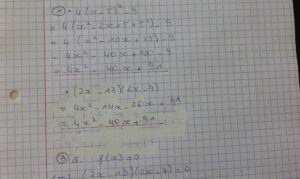 ① • 4(x-5)² - 9
= 4(x² - 2x×5 + 5²) - 9
= 4(x² - 10x + 25) - 9
= 4x² - 40x + - 9
= 4x² - 40x + 91
• (2x-13)(2x-7)
= 4x² - 14x - 26x + 91
= 4x² - 40x + 91
② a. f(x) = 0
(2x - 13)(2x - 7) = 0